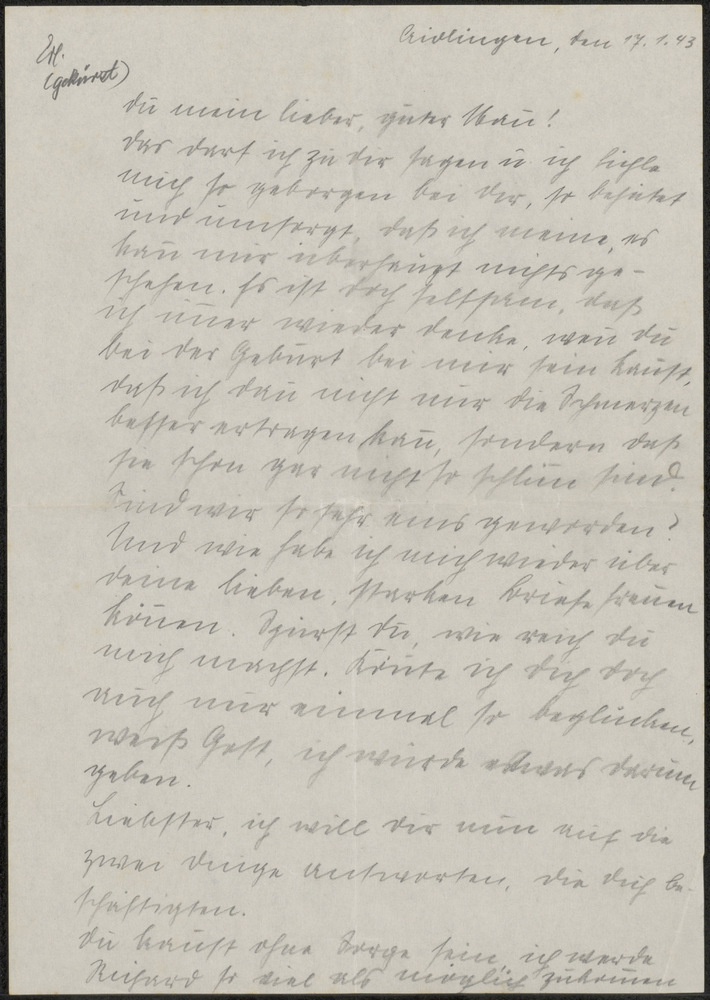 Erl.
(gekürzt)
Aidlingen, den 17.1.43
Du mein lieber, guter Mañ!
Das darf ich zu dir sagen u. ich fühle
mich so geborgen bei dir, so behütet
und umsorgt, daß ich meine, es
kañ mir überhaupt nichts ge-
schehen. Es ist doch seltsam, daß
ich im̄er wieder denke, weñ du
bei der Geburt bei mir sein kañst,
daß ich dañ nicht nur die Schmerzen
besser ertragen kañ, sondern daß
sie schon gar nicht so schlim̄ sind.
Sind wir so sehr eins geworden?
Und wie habe ich mich wieder über
deine lieben, starken Briefe freuen
köñen. Spürst du, wie reich du
mich machst. Köñte ich dich doch
auch nur einmal so beglücken,
weiß Gott, ich würde etwas darum
geben.
Liebster, ich will dir nun auf die
zwei Dinge antworten, die dich be-
schäftigten.
Du kañst ohne Sorge sein, ich werde
Richard so viel als möglich zukom̄en